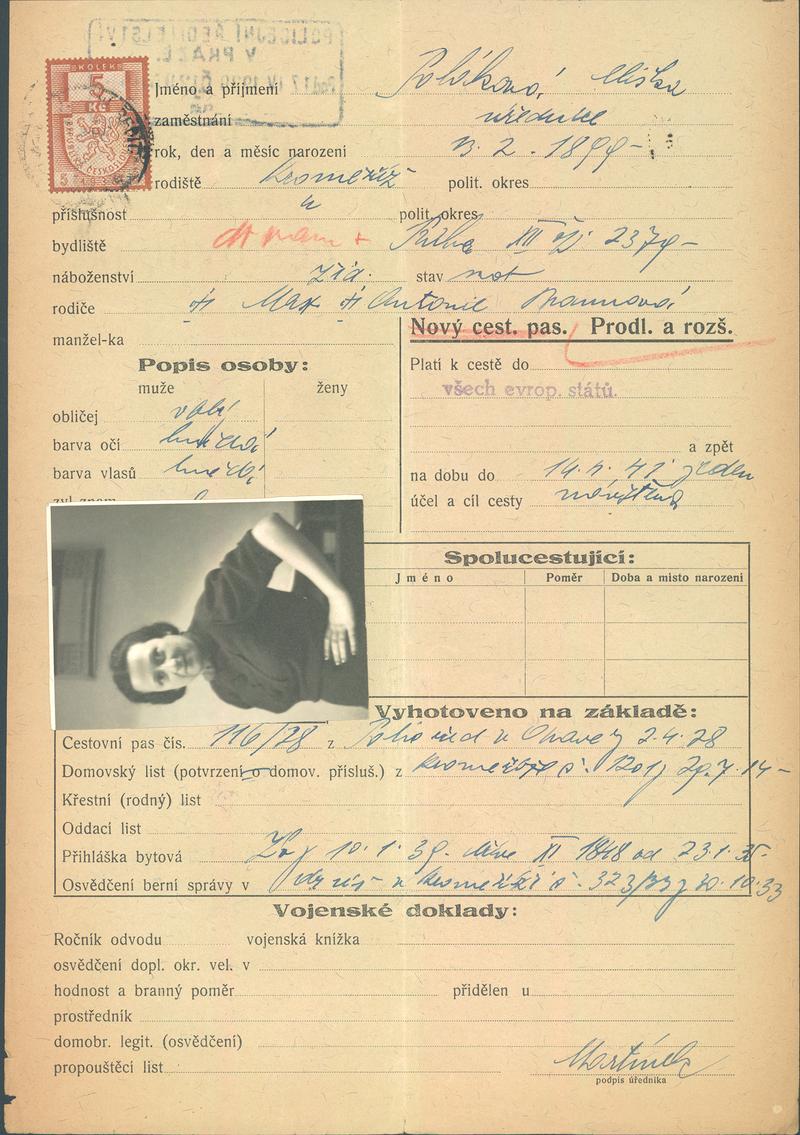 KOLEK
5
Kč
Jméno a příjmení Poláková Eliška
zaměstnání úřednice
rok, den a měsíc narození 13. 2. 1899
rodiště Kroměříž polit. okres
příslušnost " polit. okres
bydliště Praha XII 2379
náboženství žid. stav
rodiče Max Antonie
manžel-ka
Nový cest. pas. Prodl. a rozš.
Popis osoby:
muže ženy
obličej
barva očí hnědá
barva vlasů hnědá
Platí k cestě do
všech evrop. států.
a zpět
na dobu do 14. 4. 41 jeden
účel a cíl cesty návštěva
Spolucestující:
Jméno Poměr Doba a místo narození
Vyhotoveno na základě:
Cestovní pas čís. 116/28 z 2. 4. 28
Domovský list (potvrzení o domov. přísluš.) z 29. 7. 14
Křestní (rodný) list
Oddací list
Přihláška bytová 10. 1. 39. XI 1848 od 23. 1. 35.
Osvědčení berní správy v Kroměříži č. 323/33 z 30. 10. 33
Vojenské doklady:
Ročník odvodu vojenská knížka
osvědčení dopl. okr. vel. v
hodnost a branný poměr přidělen u
prostředník
domobr. legit. (osvědčení)
propouštěcí list Martínek
podpis úředníka